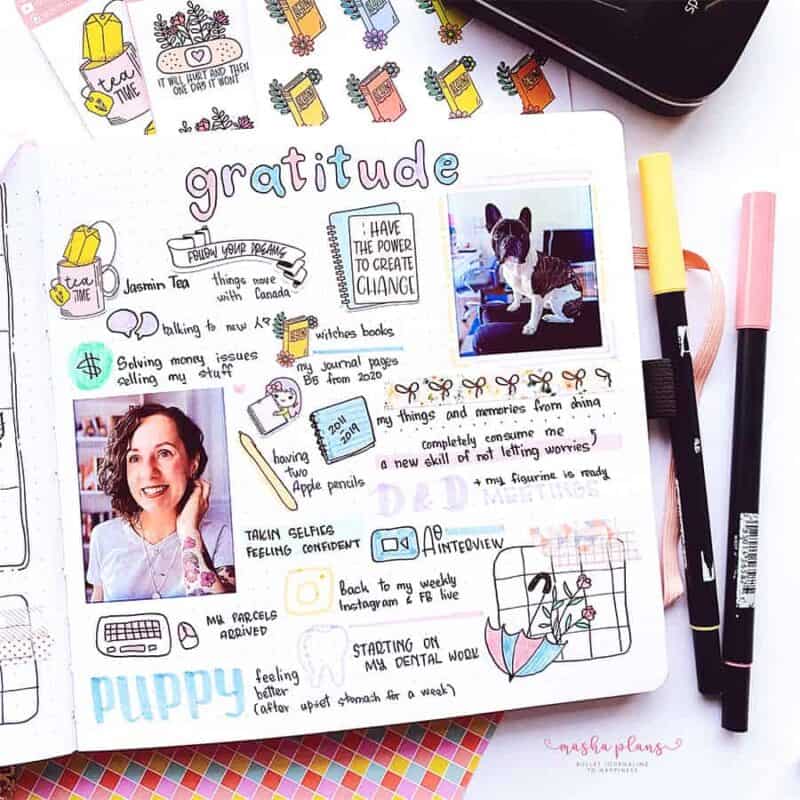 tea
TIME
IT WILL HURT AND THEN
ONE DAY IT WON'T
gratitude
tea
TIME
Jasmin Tea
FOLLOW YOUR DREAMS
things move
with Canada
I HAVE
THE POWER
TO CREATE
CHANGE
talking to new
witches books
$
Solving money issues
selling my stuff
my journal pages
B5 from 2020
2011
-
2019
my things and memories from china
completely consume me
a new skill of not letting worries
having
two
Apple pencils
D & D
+ my figurine is ready
MEETINGS
TAKIN SELFIES
FEELING CONFIDENT
INTERVIEW
Back to my weekly
Instagram & FB live
MY PARCELS
ARRIVED
STARTING ON
MY DENTAL WORK
PUPPY
feeling
better
(after upset stomach for a week)
masha plans
BULLET JOURNALING
TO HAPPINESS